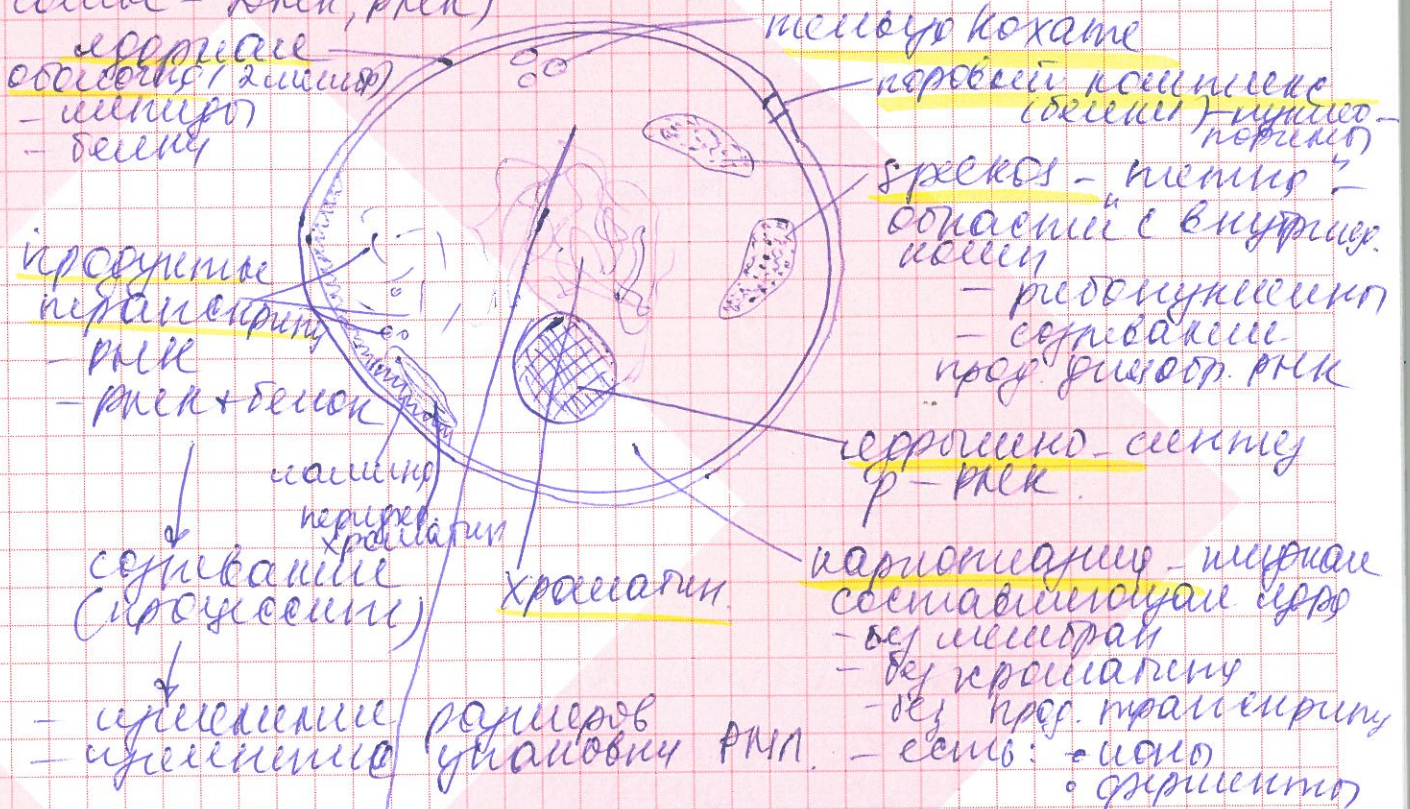 ДНК, РНК)
ядерная
оболочка (2 листка)
- липиды
- белки
продукты
транскрипц
- РНК
- РНК + белок
созревание
(процессинг)
- изменение размеров
- изменение упаковки РНП.
ламина
перифер.
хроматин
хроматин.
тельца Кохаля
поровый комплекс
(белки) - нуклео-
порины
speckles - "пятна" -
области с внутрияд.
- рибонуклеины
- созревание
прод. РНК
ядрышко - синтез
р - РНК.
кариоплазма - жидкая
составляющая ядра
- без мембран
- без хроматину
- без прод. транскрипц
- есть: • ионы
• ферменты